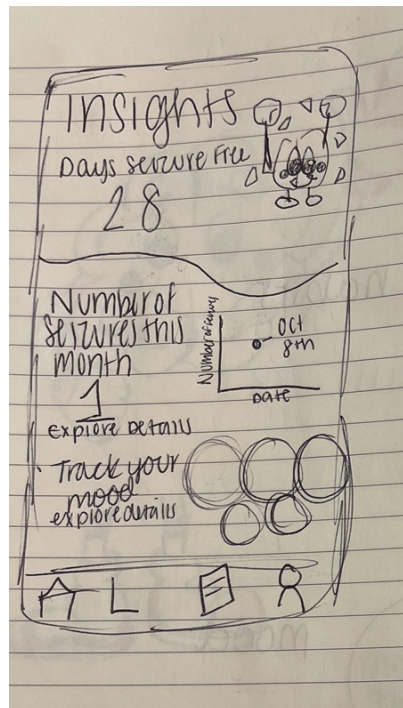 Insights
Days seizure Free
28
Number of
seizures this
month
1
explore Details
Number of
oct
8th
Date
Track your
mood
explore details